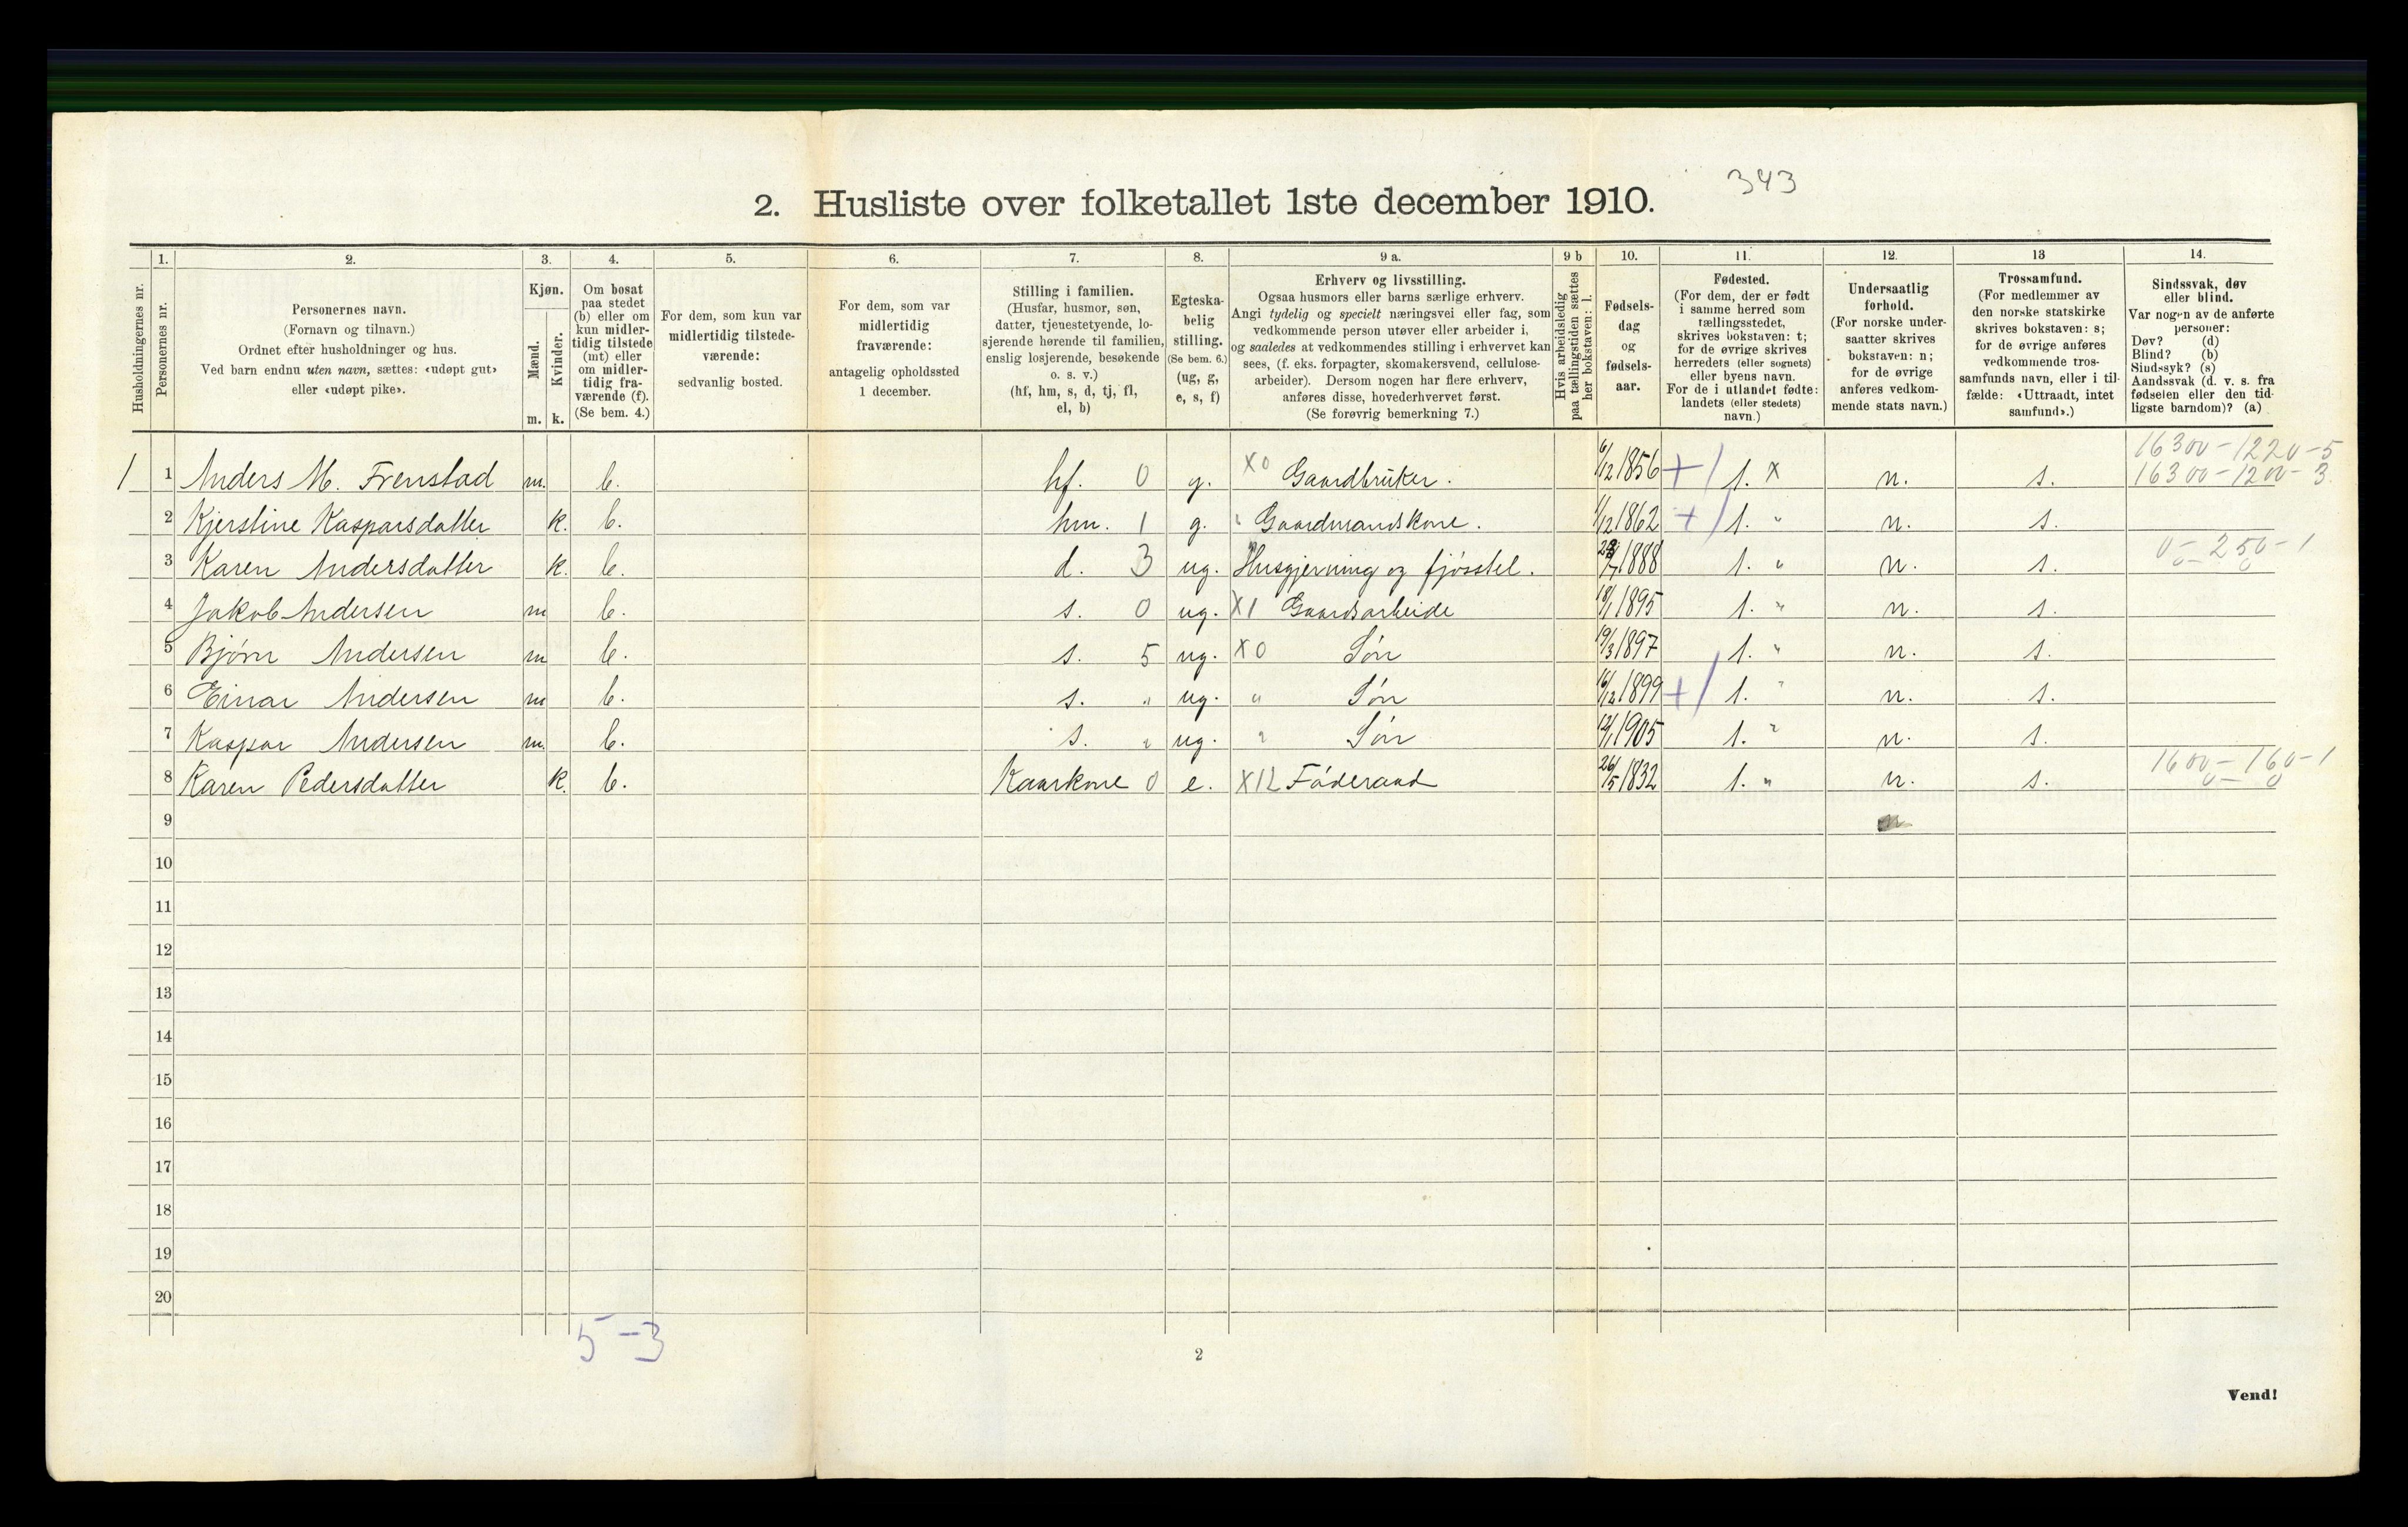 343
2. Husliste over folketallet 1ste december 1910.
Husholdningernes nr.
1.
Personernes nr.
2.
Personernes navn.
(Fornavn og tilnavn.)
Ordnet efter husholdninger og hus.
Ved barn endnu uten navn, sættes: «udøpt gut»
eller «udøpt pike».
3.
Kjøn.
Mænd.
Kvinder.
m. k.
4.
Om bosat
paa stedet
(b) eller om
kun midler-
tidig tilstede
(mt) eller
om midler-
tidig fra-
værende (f).
(Se bem. 4.)
5.
For dem, som kun var
midlertidig tilstede-
værende:
sedvanlig bosted.
6.
For dem, som var
midlertidig
fraværende:
antagelig opholdssted
1 december.
7.
Stilling i familien.
(Husfar, husmor, søn,
datter, tjenestetyende, lo-
sjerende hørende til familien,
enslig losjerende, besøkende
o. s. v.)
(hf, hm, s, d, tj, fl,
el, b)
8.
Egteska-
belig
stilling.
(Se bem. 6.)
(ug, g,
e, s, f)
9 a.
Erhverv og livsstilling.
Ogsaa husmors eller barns særlige erhverv.
Angi tydelig og specielt næringsvei eller fag, som
vedkommende person utøver eller arbeider i,
og saaledes at vedkommendes stilling i erhvervet kan
sees, (f. eks. forpagter, skomakersvend, cellulose-
arbeider). Dersom nogen har flere erhverv,
anføres disse, hovederhvervet først.
(Se forøvrig bemerkning 7.)
9 b
Hvis arbeidsledig
paa tællingstiden sættes
her bokstaven: l.
10.
Fødsels-
dag
og
fødsels-
aar.
11.
Fødested.
(For dem, der er født
i samme herred som
tællingsstedet,
skrives bokstaven: t;
for de øvrige skrives
herredets (eller sognets)
eller byens navn.
For de i utlandet fødte:
landets (eller stedets)
navn.)
12.
Undersaatlig
forhold.
(For norske under-
saatter skrives
bokstaven: n;
for de øvrige
anføres vedkom-
mende stats navn.)
13
Trossamfund.
(For medlemmer av
den norske statskirke
skrives bokstaven: s;
for de øvrige anføres
vedkommende tros-
samfunds navn, eller i til-
fælde: «Uttraadt, intet
samfund».)
14.
Sindssvak, døv
eller blind.
Var nogen av de anførte
personer:
Døv? (d)
Blind? (b)
Sindssyk? (s)
Aandssvak (d. v. s. fra
fødselen eller den tid-
ligste barndom)? (a)
16300-1220-5
1 1 Anders M. Frenstad m. b. hf. 0 g. X0 Gaardbruker. 6/12 1856 +/ t. x n. s. 16300-1200-3
2 Kjerstine Kasparsdatter k. b. hm. 1 g. " Gaardmandskone. 1/12 1862 +/ t. " n. s.
3 Karen Andersdatter k. b. d. 3 ug. Husgjerning og fjøsstel. 1888 t. " n. s. 0-250-1
0-0
4 Jakob Andersen m b. s. 0 ug. X1 Gaardsarbeide 18/1 1895 t. " n. s.
5 Bjørn Andersen m b. s. 5 ug. X0 Søn 19/3 1897 t. " n. s.
6 Einar Andersen m b. s. " ug. " Søn 16/12 1899 +/ t. " n. s.
7 Kaspar Andersen m. b. s. " ug. " Søn 12/1 1905 t. " n. s.
8 Karen Pedersdatter k. b. Kaarkone 0 e. X12 Føderaad 26/5 1832 t. " n. s. 1600-160-1
0-0
9
10
11
12
13
14
15
16
17
18
19
20
5-3
2
Vend!